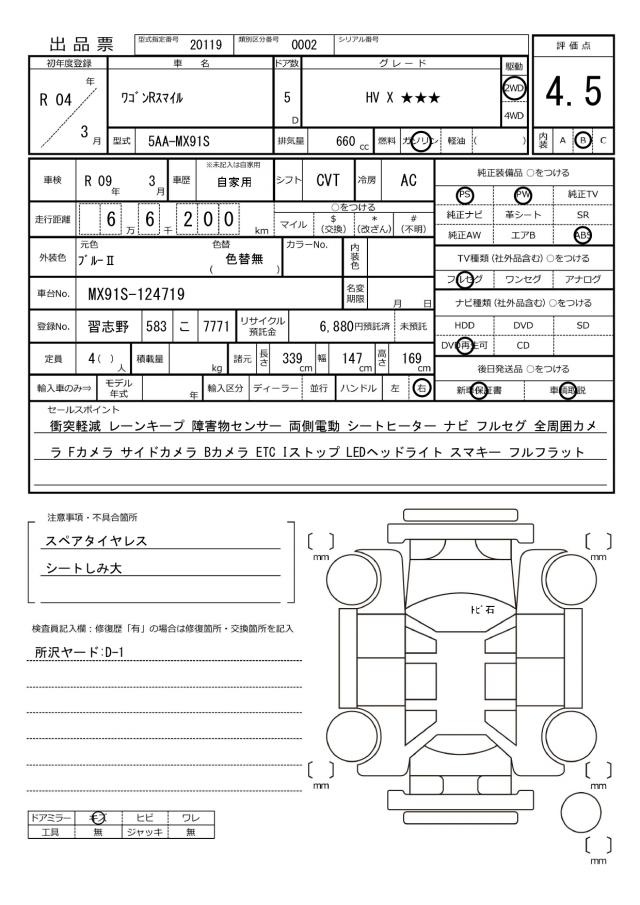 出品票 型式指定番号 20119 類別区分番号 0002 シリアル番号
評価点
4.5
初年度登録 車名 ドア数 グレード 駆動
R 04 年 3 月
ワゴンRスマイル 5 D HV X ★★★ 2WD 4WD
型式 5AA-MX91S 排気量 660 cc 燃料 ガソリン 軽油 ( )
内装 A B C
車検 R 09 年 3 月 車歴 ※未記入は自家用 自家用 シフト CVT 冷房 AC
走行距離 6 万 6 千 2 0 0 km
○をつける
マイル $(交換) *(改ざん) #(不明)
外装色 元色 ブルーⅡ 色替 ( 色替無 ) カラーNo. 内装色
車台No. MX91S-124719 名変期限 月 日
登録No. 習志野 583 こ 7771 リサイクル預託金 6,880円預託済 未預託
定員 4( ) 人 積載量 kg 諸元 長さ 339 cm 幅 147 cm 高さ 169 cm
輸入車のみ⇒ モデル年式 年 輸入区分 ディーラー 並行 ハンドル 左 右
純正装備品 ○をつける
PS PW 純正TV
純正ナビ 革シート SR
純正AW エアB ABS
TV種類(社外品含む)○をつける
フルセグ ワンセグ アナログ
ナビ種類(社外品含む)○をつける
HDD DVD SD
DVD再生可 CD
後日発送品 ○をつける
新車保証書 車輌取説
セールスポイント
衝突軽減 レーンキープ 障害物センサー 両側電動 シートヒーター ナビ フルセグ 全周囲カメ
ラ Fカメラ サイドカメラ Bカメラ ETC Iストップ LEDヘッドライト スマキー フルフラット
注意事項・不具合箇所
スペアタイヤレス
シートしみ大
検査員記入欄:修復歴「有」の場合は修復箇所・交換箇所を記入
所沢ヤード:D-1
ドアミラー キズ ヒビ ワレ
工具 無 ジャッキ 無
mm
mm
トビ石
mm
mm
mm